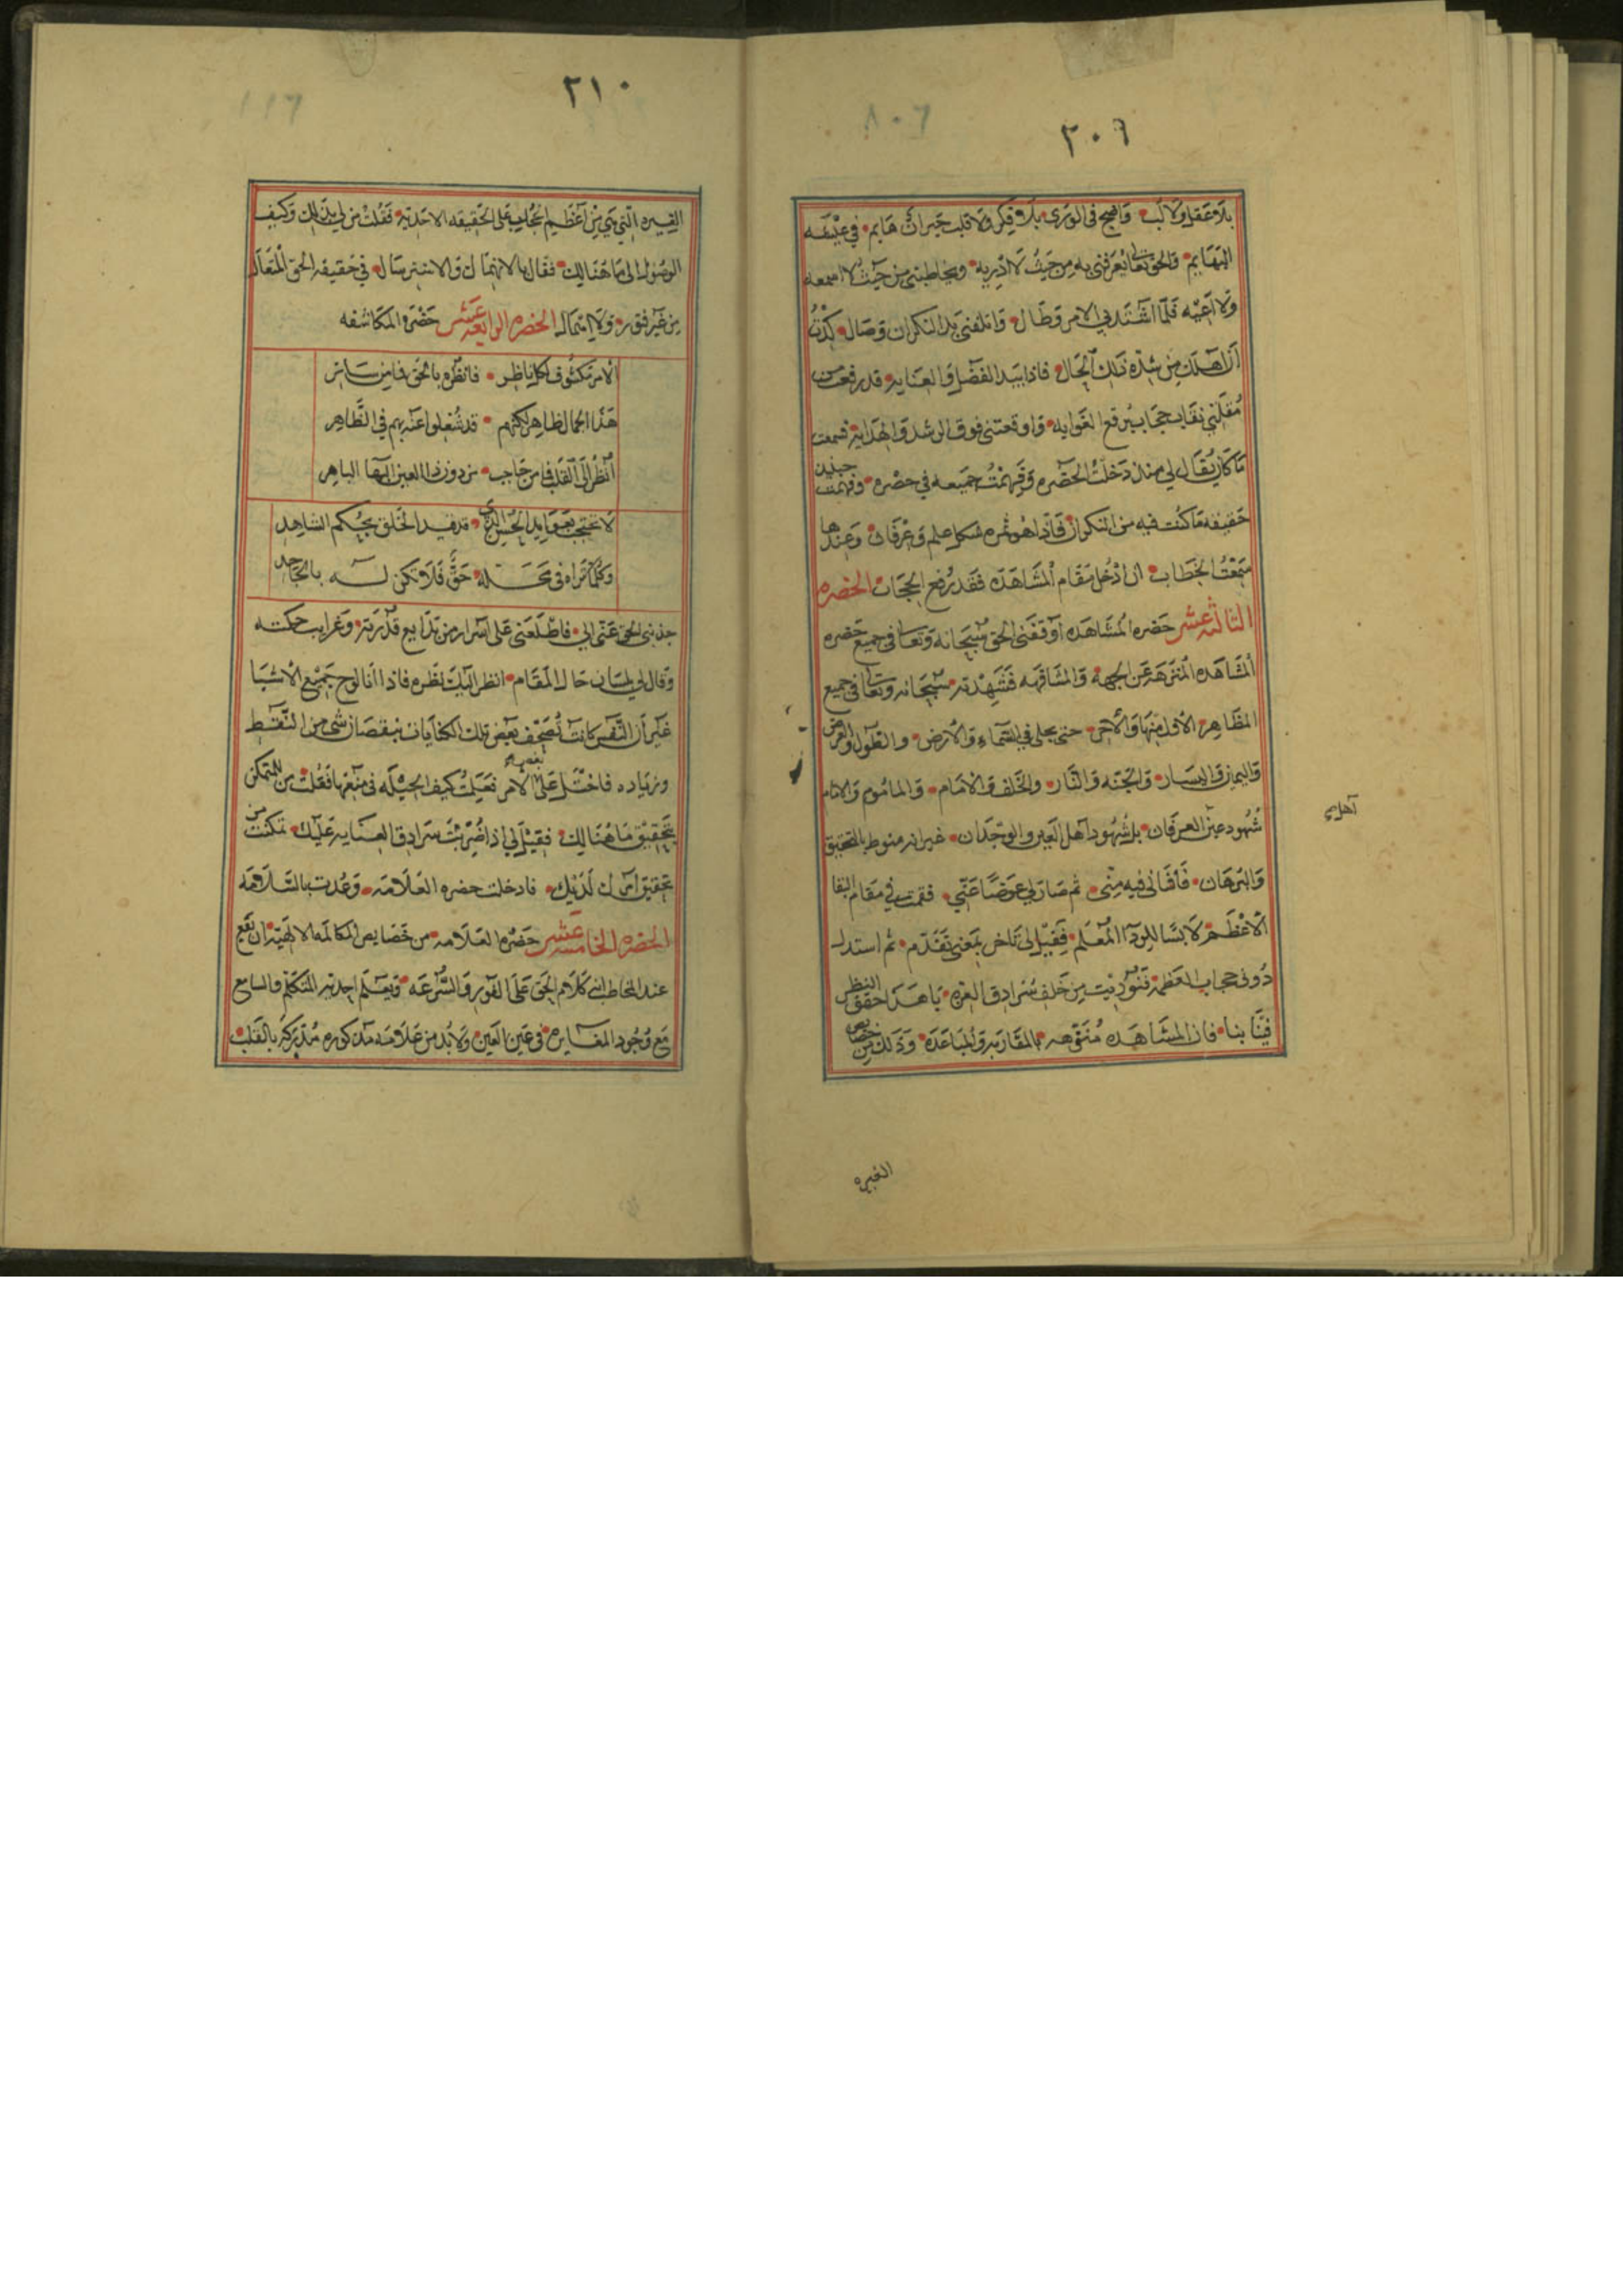 ٢٠٩
بلا عقل ولا لب واصبح في الورى بلا فكر ولا قلب حيران هايم في عيشه
البهايم والحق تعالى يعرفنى به من حيث لا ادريه ويخاطبنى من حيث لا اسمعه
ولا اعيه فلما اشتد بي الامر وطال واتلفنى يد النكران وصال كدت
ان اهلك من شده ذلك الحال فاذا بيد الفضل والعنايه قد رفعت من
مقلتي نقاب حجاب برقع الغوايه واوقعتنى فوق الرشد والهدايه فسمعت
ما كان يقال لي منذ دخلت الحضره وفهمت جميعه في حضره وفهمت حينيذ
حقيقه ما كنت فيه من النكران فاذا هو ثمره شكل علم وعرفان وعندها
سمعت الخطاب ان ادخل مقام المشاهده فقد رفع الحجاب الحضره
الثالثه عشر حضره المشاهده اوقفنى الحق سبحانه وتعالى في جميع حضره
المشاهده المنزهه عن الجهه والمشافهه فشهدته سبحانه وتعالى في جميع
المظاهر الاول منها والآخر حتى يجلى في السماء والارض والطول والعرض
واليمين واليسار والجنه والنار والخلف والامام والماموم والامام
شهود عين العرفان بل شهود اهل العين والوجدان غير انه منوط بالتحقيق
اهل
والبرهان فافنانى فيه منى ثم صار لي عوضا عني فقمت في مقام البقا
الاعظم لابسا للردا المعلم فقيل لي تاخر بمعنى تقدم ثم استدل
دونى حجاب العظمه فنوديت من خلف سرادق العزه يا هذا حقق النظر
فينا بنا فان المشاهده منزهه المقاربه والمباعده وذلك من خصايص
الغيره
٢١٠
الغيره التي هي من اعظم الحجاب على الحقيقه الاحديه فقلت من لي بذلك وكيف
الوصول الى ما هنالك فقال بالانهمال والاسترسال في حقيقه الحق المتعال
من غير فتور ولا امهال الحضره الرابعه عشر حضره المكاشفه
الامر مكشوف لكل ناظر فانظره بالحق فما من ساتر
هذا الجمال ظاهر لكنهم قد شغلوا عنه بهم في الظاهر
انظر الى القلب فما من حاجب من دون ذا العين البها الباهر
لا تحتجب بعوايد الحس الذى قد قيد الخلق بحكم الشاهد
وكلما تراه في محله حق فلا تكن له بالجاحد
جذبنى الحق عنى الي فاطلعنى على اسرار من بدايع قدرته وغرايب حكمته
وقال لي بلسان حال المقام انظر اليك نظره فاذا انا لوح جميع الاشيا
غير ان النفس كانت تصحف بعض تلك الكتابات بنقصان شى من النقط
وزياده فاختل على الامر فعلمت كيف الحيله في منعها فقلت من للتمكن
بتحقيق ما هنالك فقيل لي اذا ضربت سرادق العنايه عليك تمكنت من
تحقيق امرك لديك فادخلت حضره العلامه وعدت بالسلامه
الحضره الخامسه عشر حضره العلامه من خصايص المكالمه الالهيه ان يقع
عند المخاطب كلام الحق على الفور والسرعه ويعلم احديه المتكلم والسامع
مع وجود المغايره في عين العين ولا بد من علامه مذكوره مدركه بالقلب